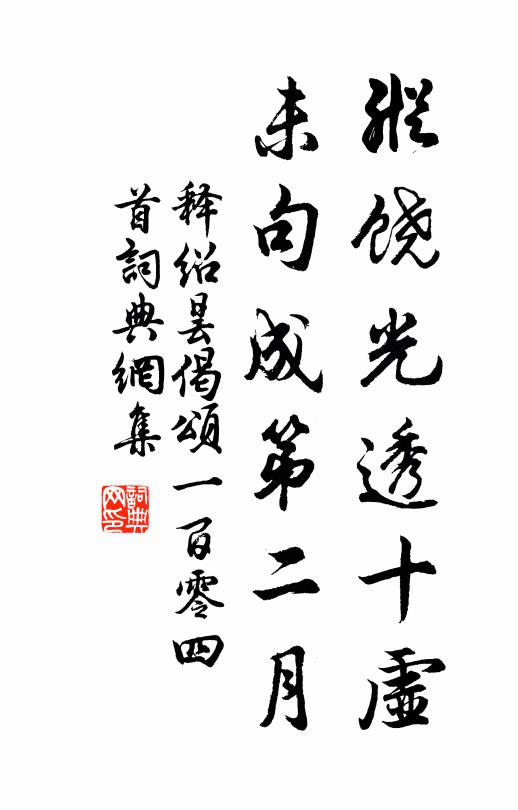 縱饶光透十虛
未句成第二月
释绍昙偈頌一百零四
首詞典網集
詞典网印